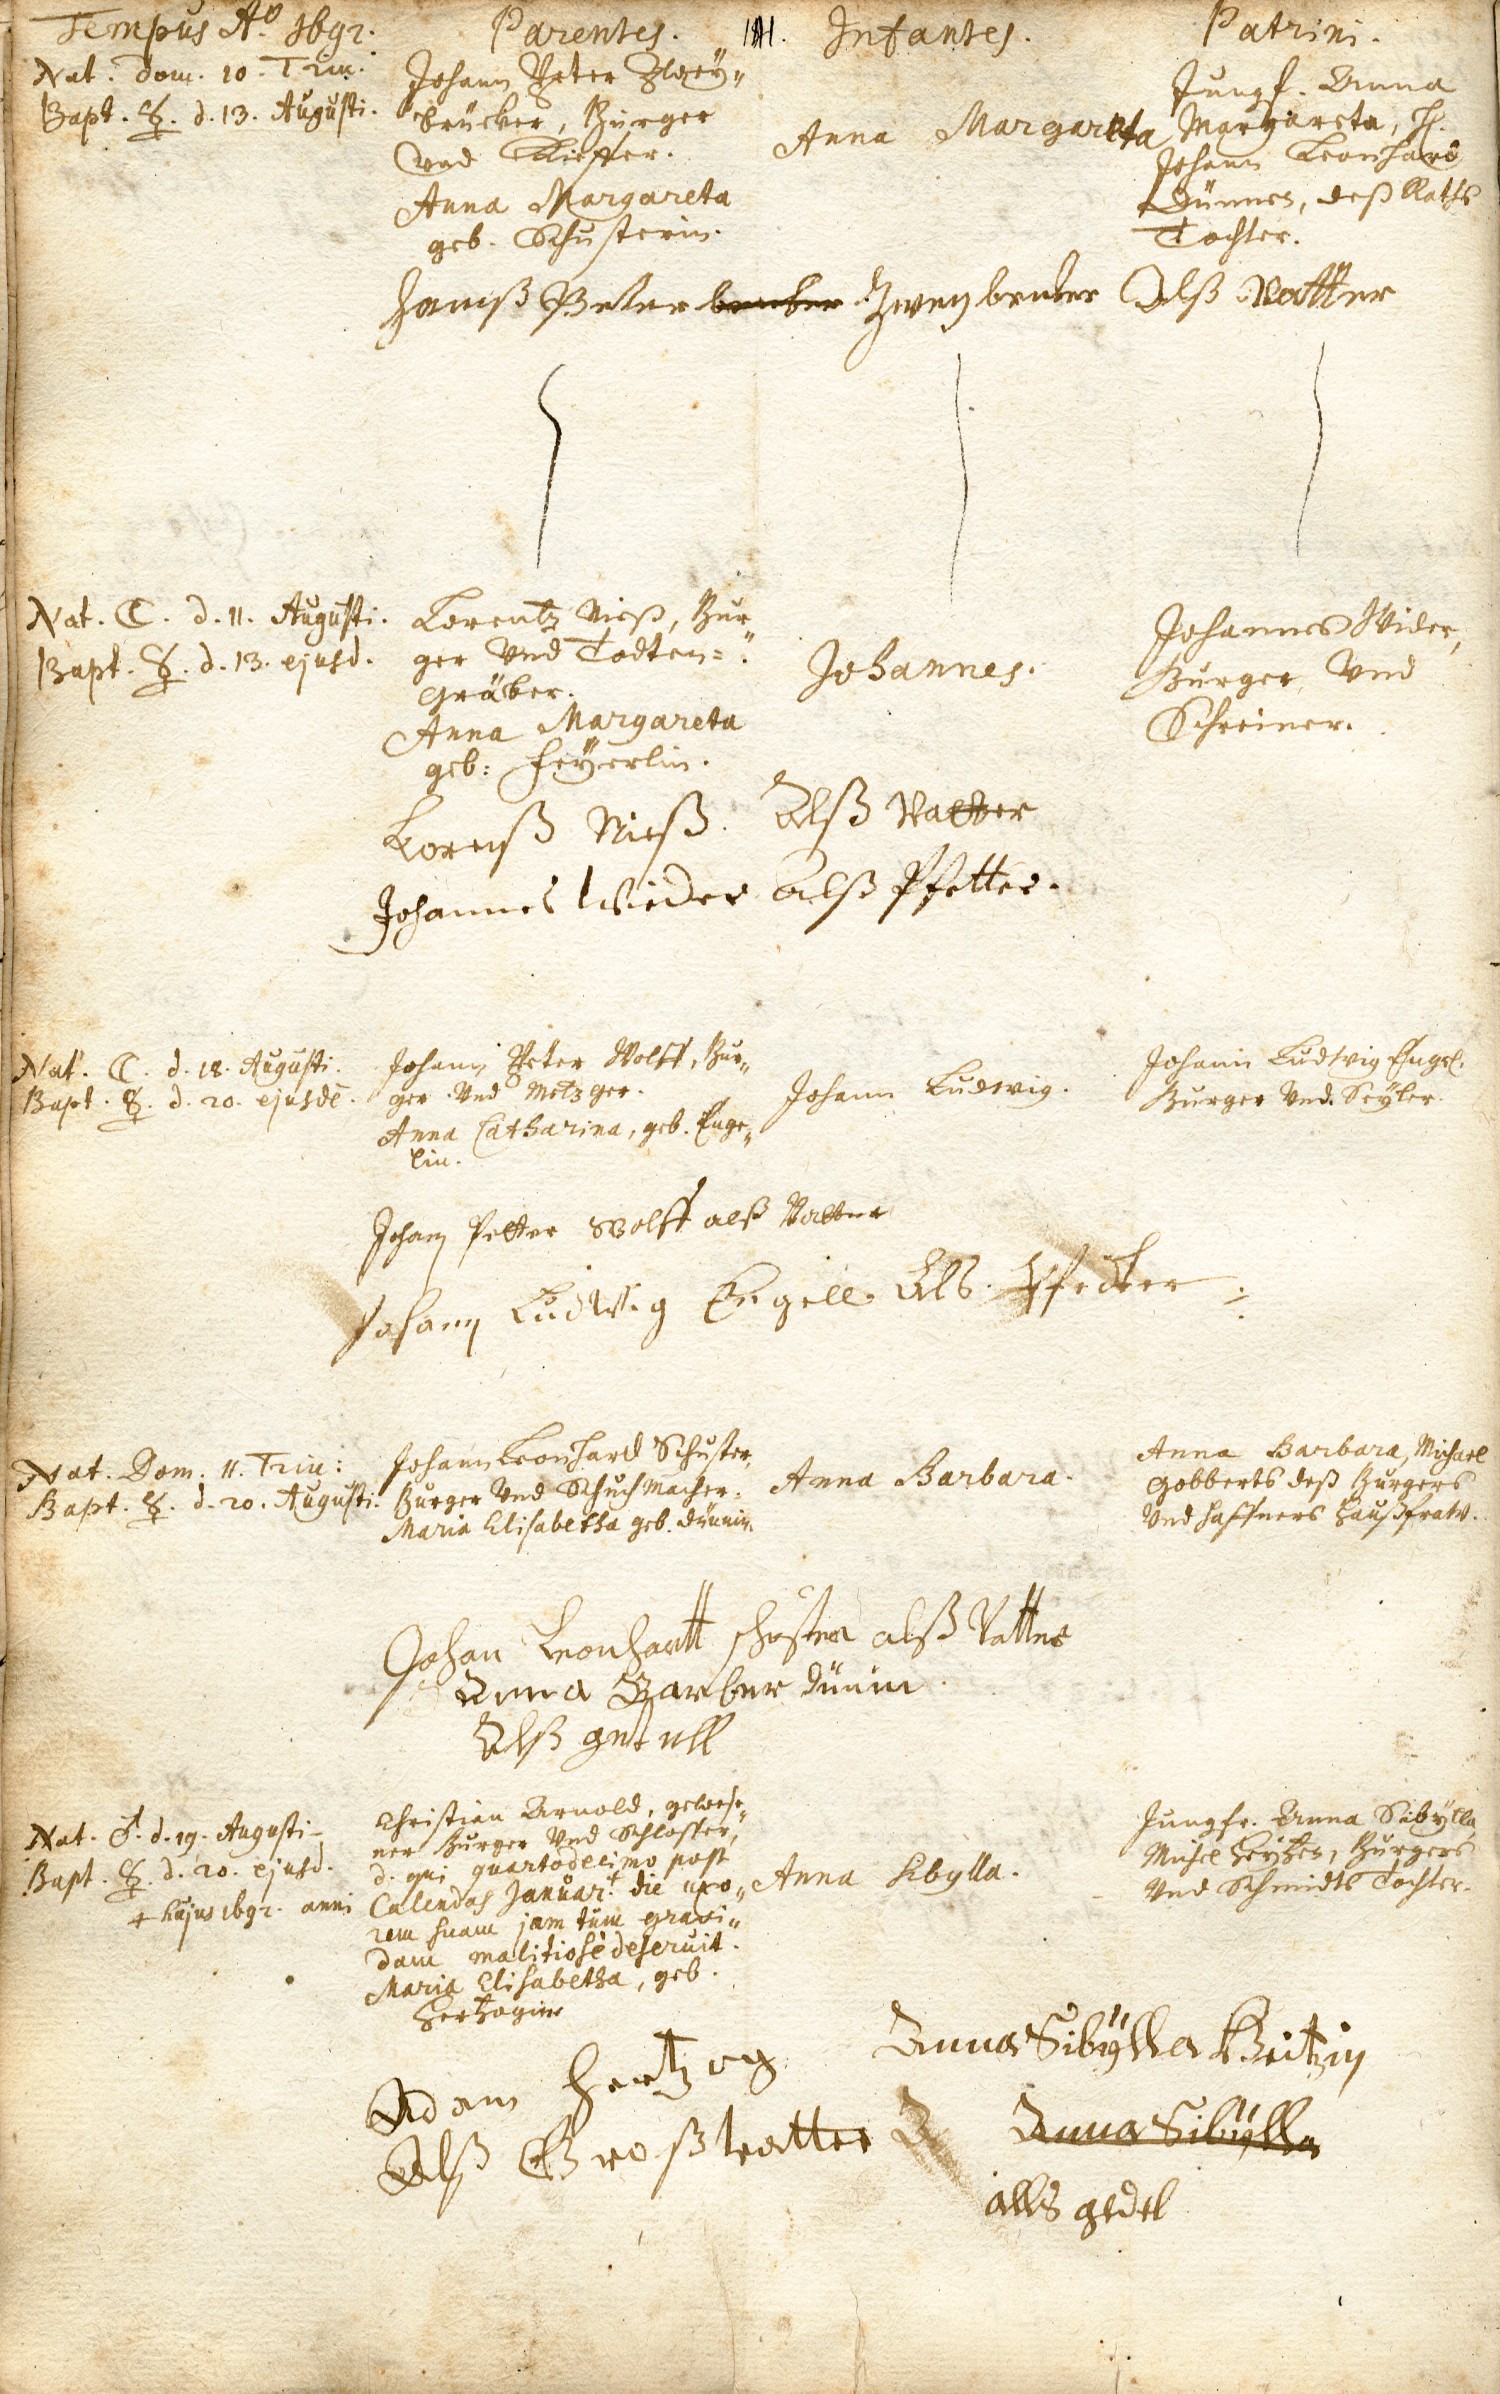 Tempus Aº. 1692.
Parentes.
Infantes.
Patrini.
Nat. Dom. 10. Trin.
Bapt. ☿. d. 13. Augusti.
Johann Peter Zweÿ„
brücker, Burger
Vnd Kieffer.
Anna Margareta
geb. Schusterin.
Anna Margareta
Jungf. Anna
Margareta, H.
Johann Leonhard
Dünnen, deß Raths
Tochter.
Hanß Peter Zweybruker Alß Vatter
Nat. ☾. d. 11. Augusti.
Bapt. ☿. d. 13. ejusd.
Lorentz Nieß, Bur„
ger Vnd Todten=
gräber.
Anna Margareta
geb: Feÿerlin.
Johannes.
Johannes Wider,
Burger Vnd
Schreiner.
Lorenß Nieß. Alß Vatter
Johannes Wieder alß Pfetter.
Nat. ☾. d. 18. Augusti.
Bapt. ☿. d. 20. ejusdē.
Johann Peter Wolff, Bur„
ger Vnd Metzger.
Anna Catharina, geb. Enge„
lin.
Johann Ludwig.
Johann Ludwig Engel.
Burger Vnd Seÿler.
Johan Petter Wolff alß Vatter
Johann Ludwig Engell Als Pfetter
Nat. Dom. 11. Trin:
Bapt. ☿. d. 20. Augusti.
Johann Leonhard Schuster,
Burger Vnd Schuchmacher.
Maria Elisabetha geb. Dünnin.
Anna Barbara.
Anna Barbara, Michael
Gobberts deß Burgers
Vnd Haffners Haußfraw.
Johan Leonhartt schuster alß Vatter
Anna Barber Dünin
Alß gettell
Nat. ♂. d. 19. Augusti
Bapt. ☿. d. 20. ejusd.
+ hujus 1692. anni
Christian Arnold, gewese„
ner Burger Vnd Schlosser,
d. qui quartodecimo post
Calendas Januar. die uxo„
rem suam jam tum gravi„
dam malitiosè deseruit.
Maria Elisabetha, geb.
Hertzogin
Anna Sibylla.
Jungfr. Anna Sibÿlla,
Michel Beitzen, Burgers
Vnd Schmidts Tochter.
Adam Hertzog
Alß Großvatter
Anna Sibÿlla Beitzin
Anna Sibÿlla
alls gedel